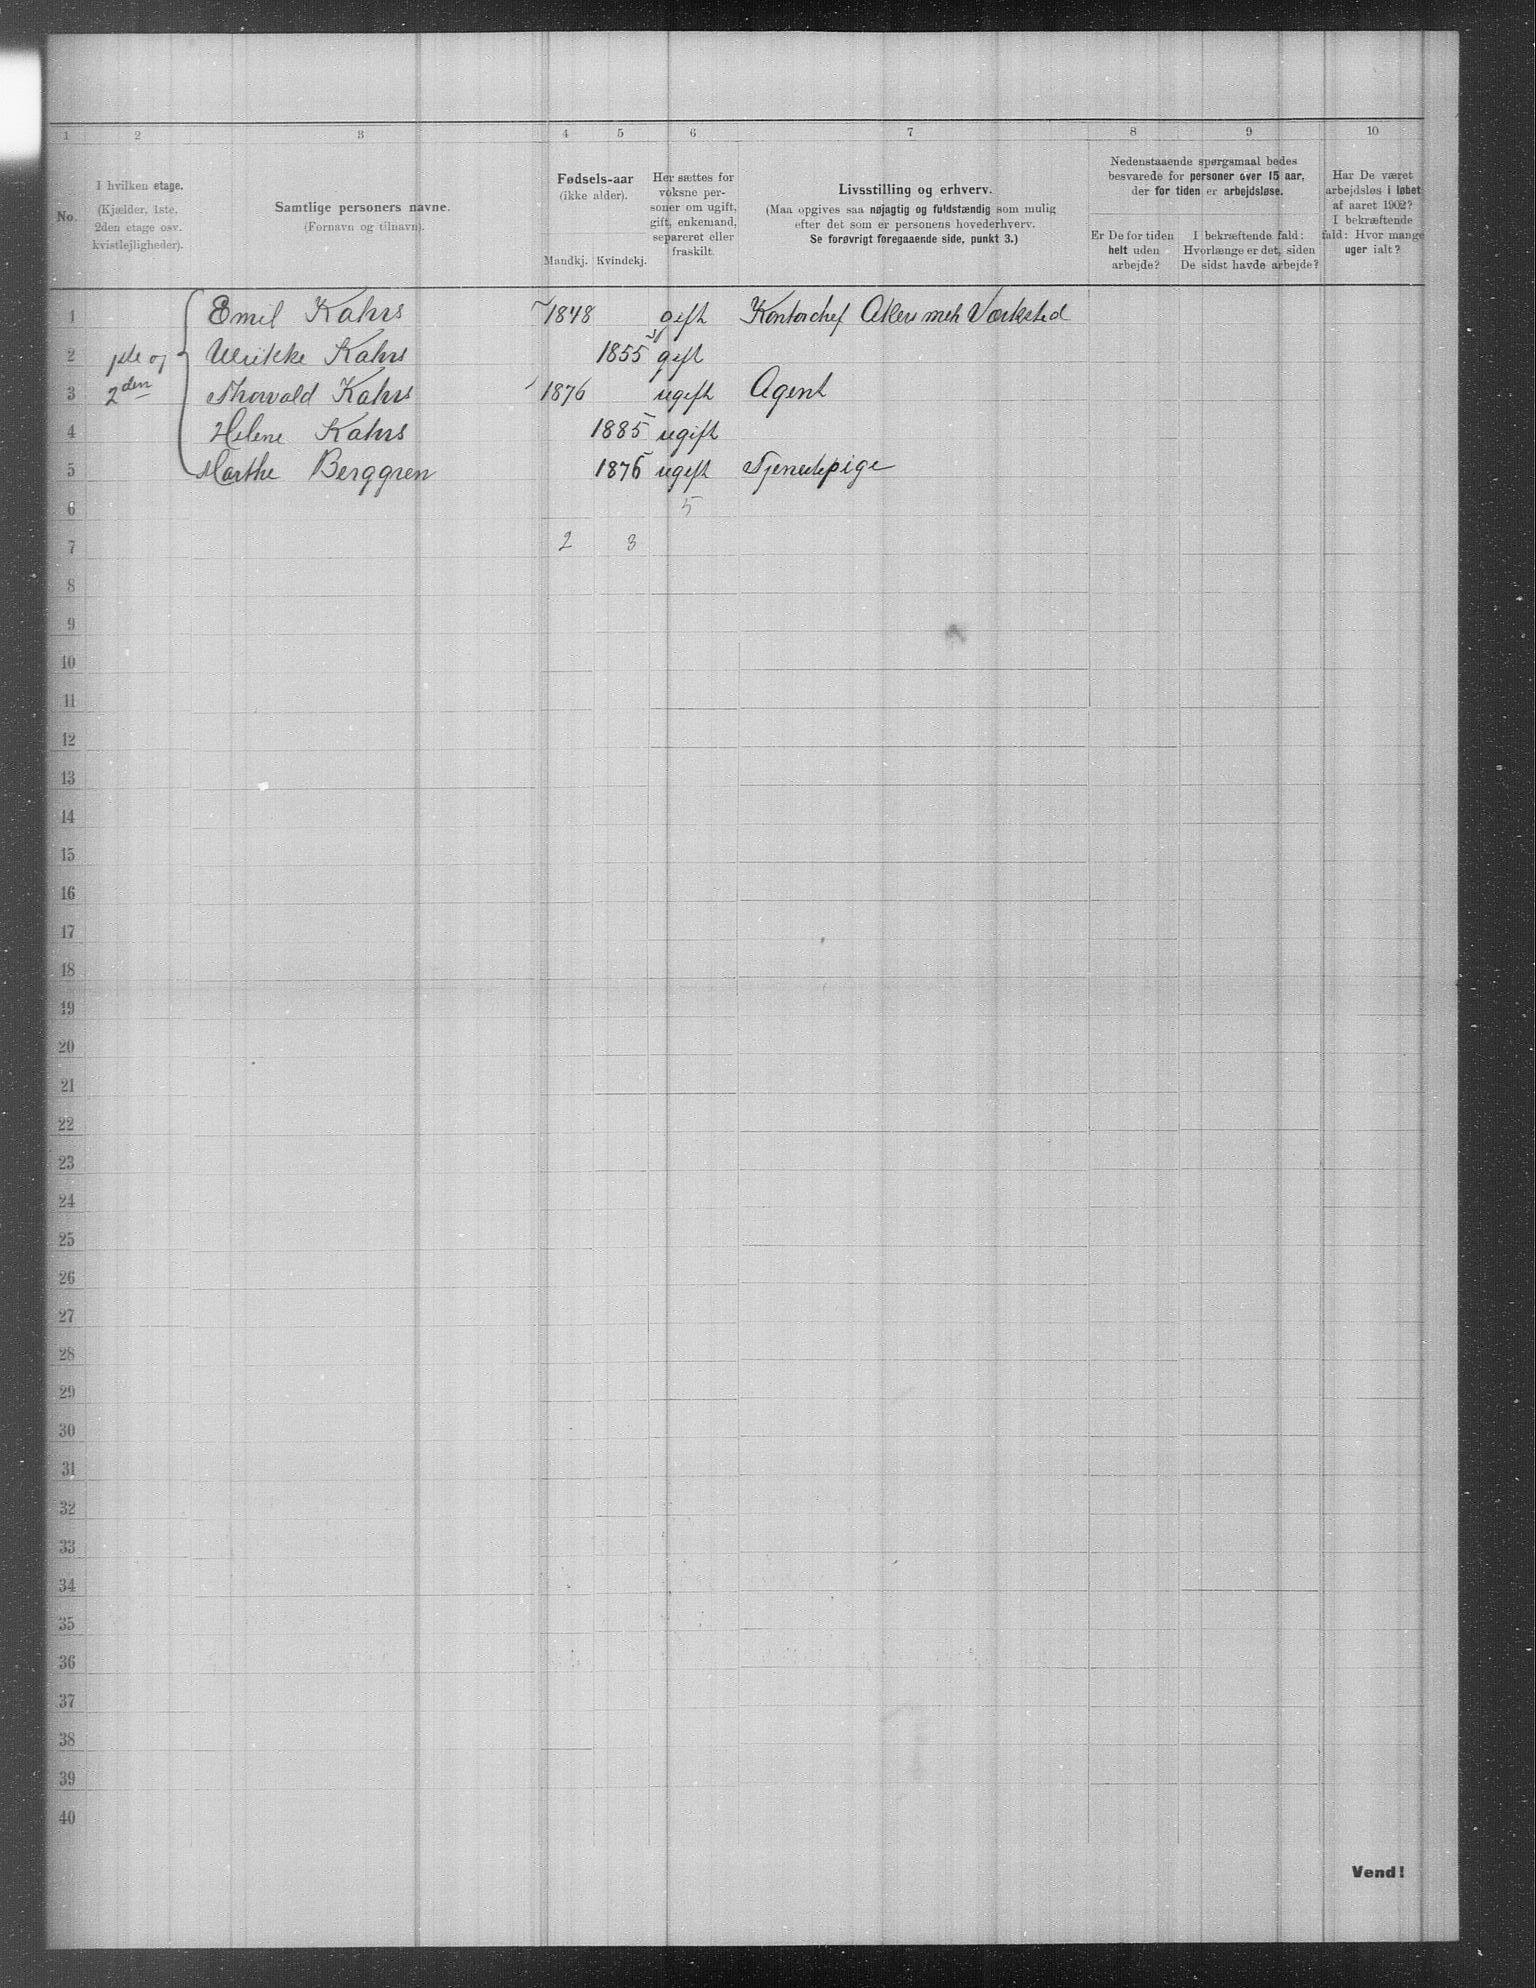 1 2 3 4 5 6 7 8 9 10
No.
I hvilken etage.
(Kjælder, 1ste,
2den etage osv.
kvistlejligheder).
Samtlige personers navne.
(Fornavn og tilnavn).
Fødsels-aar
(ikke alder).
Mandkj. Kvindekj.
Her sættes for
voksne per-
soner om ugift,
gift, enkemand,
separeret eller
fraskilt.
Livsstilling og erhverv.
(Maa opgives saa nøjagtig og fuldstændig som mulig
efter det som er personens hovederhverv.
Se forøvrigt foregaaende side, punkt 3.)
Nedenstaaende spørgsmaal bedes
besvarede for personer over 15 aar,
der for tiden er arbejdsløse.
Er De for tiden
helt uden
arbejde?
I bekræftende fald:
Hvorlænge er det, siden
De sidst havde arbejde?
Har De været
arbejdsløs i løbet
af aaret 1902?
I bekræftende
fald: Hvor mange
uger ialt?
1 Emil Kahrs 1848 gift Kontorchef Akers mek Værksted
2 1ste og Ulrikke Kahrs 1855 gift
3 2den Thorvald Kahrs 1876 ugift Agent
4 Helene Kahrs 1885 ugift
5 Marthe Berggren 1876 ugift Tjenestepige
6 5
7 2 3
8
9
10
11
12
13
14
15
16
17
18
19
20
21
22
23
24
25
26
27
28
29
30
31
32
33
34
35
36
37
38
39
40
Vend!